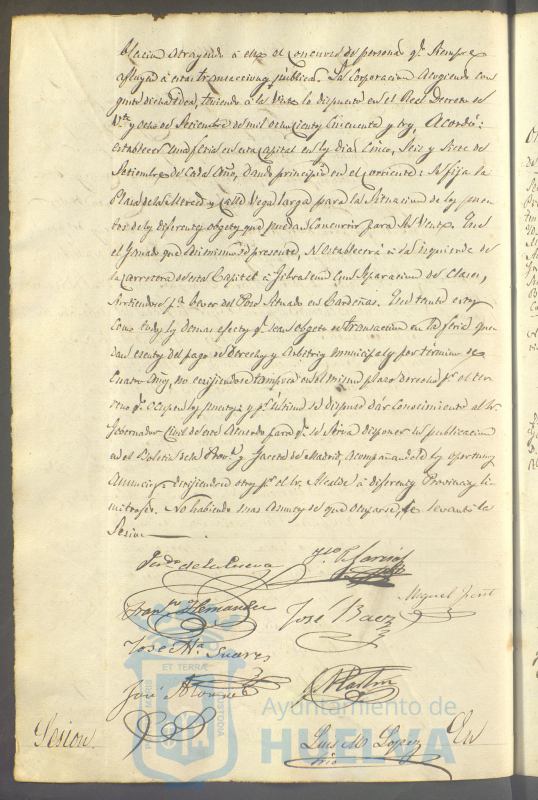 blacion atrayendo á ella el concurso de personas qe. siempre
afluyen á estas transacciones públicas. La Corporacion acogiendo con
gusto dicha idea, teniendo á la vista lo dispuesto en el Real Decreto de
veinte y ocho de Setiembre de mil ochocientos cincuenta y tres, Acordó:
establecer una feria en esta Capital en los dias Cinco, Seis y Siete de
Setiembre de Cada Año, dando principio en el corriente: Se fija la
Plaza de la Merced y Calle Vega larga para la situacion de los puestos
de los diferentes objetos que puedan concurrir para su venta. En
el ganado que asimismo se presente, se establecerá á la izquierda de
la carretera de esta Capital á Gibraleon con separacion de clases,
sirtiendose pa. beber del Pozo situado en Cardeñas. Que tanto este
como todos los demas efectos qe. sean objeto de transaccion en la feria que
dan esentos del pago de derechos y arbitrios municipales por término de
Cuatro Años, no exijiendose tampoco en el mismo plazo derechos pr. el ter
reno qe. ocupen los puestos y pr. último se dispuso dár conocimiento al Sr.
Gobernador Civil de este Acuerdo para qe. se sirva disponer su publicacion
en el Boletin de la Prova. y Gaceta de Madrid, acompañandole los oportunos
Anuncios dirijiendose otros pr. el Sr. Alcalde á diferentes Provincias li
mitrofes. No habiendo mas asuntos de que ocuparse, se levantó la
Sesion
de la Cueva Garcia
Franco. Hernandez José Baez Miguel
José Ma. Suares
José Alonso Martin
Luis M. Lopez
Srio
Sesion. En
ET TERRÆ
CUSTODIA
Ayuntamiento de
HUELVA